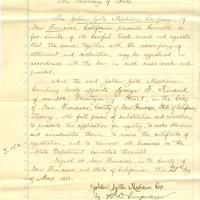 The Secretary of State
The Golden Gate Medicine Company of
San Francisco, California presents herewith a
fac simile of its lawful trade mark and requests
that the same, together with the accompanying
statement and declaration, may be registered in
accordance with the law in such cases made and
provided.
And the said Golden Gate Medicine
Company hereby appoints George F.
of Montgomery Street, in the City
of San Francisco, County of San Francisco, State of California
Attorney, with full power of substitution and revocation
to prosecute this application for registry, to make alterations
and amendments therein, to receive the certificate of
registration, and to transact all business in the
State Department connected therewith.
Signed at San Francisco, in the County of
San Francisco, and State of California, this 21st day
of May
Golden Gate Medicine Co.
by